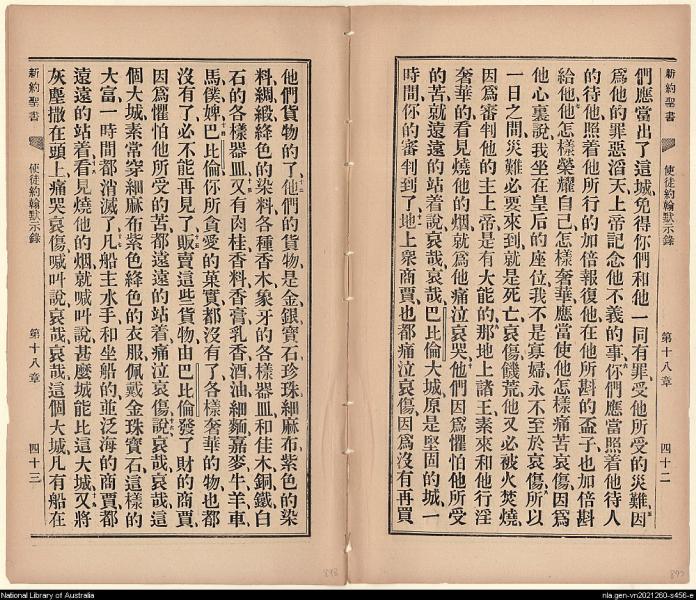 們應當出了這城免得你們和他一同有罪受他所受的災難因
爲他的罪惡滔天上帝記念他不義的事你們應當照着他待人
的待他照着他所行的加倍報復他在他所斟的盃子也加倍斟
給他他怎樣榮耀自己怎樣奢華應當使他怎樣痛苦哀傷因爲
他心裏說我坐在皇后的座位我不是寡婦永不至於哀傷所以
一日之間災難必要來到就是死亡哀傷饑荒他又必被火焚燒
因爲審判他的主上帝是有大能的那地上諸王素來和他行淫
奢華的看見燒他的烟就爲他痛泣哀哭他們因爲懼怕他所受
的苦就遠遠的站着說哀哉哀哉巴比倫大城原是堅固的城一
時間你的審判到了地上衆商賈也都痛泣哀傷因爲沒有再買
新約聖書 使徒約翰默示錄 第十八章 四十二
他們貨物的了他們的貨物是金銀寶石珍珠細麻布紫色的染
料綢緞絳色的染料各種香木象牙的各樣器皿和佳木銅鐵白
石的各樣器皿又有肉桂香料香膏乳香酒油細麵嘉麥牛羊車
馬僕婢巴比倫你所貪愛的菓實都沒有了各樣奢華的物也都
沒有了必不能再見了販賣這些貨物由巴比倫發了財的商賈
因爲懼怕他所受的苦都遠遠的站着痛泣哀傷說哀哉哀哉這
個大城素常穿細麻布紫色絳色的衣服佩戴金珠寶石這樣的
大富一時間都消滅了凡船主水手和坐船的並泛海的商賈都
遠遠的站着看見燒他的烟就喊叫說甚麼城能比這大城又將
灰塵撒在頭上痛哭哀傷喊叫說哀哉哀哉這個大城凡有船在
新約聖書 使徒約翰默示錄 第十八章 四十三
National Library of Australia
nla.gen-vn2021260-s456-e